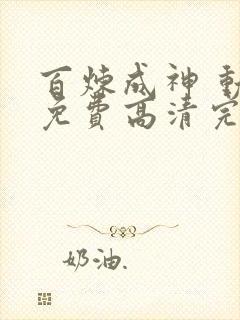 百煉成神 動
免費高清完
奶油.